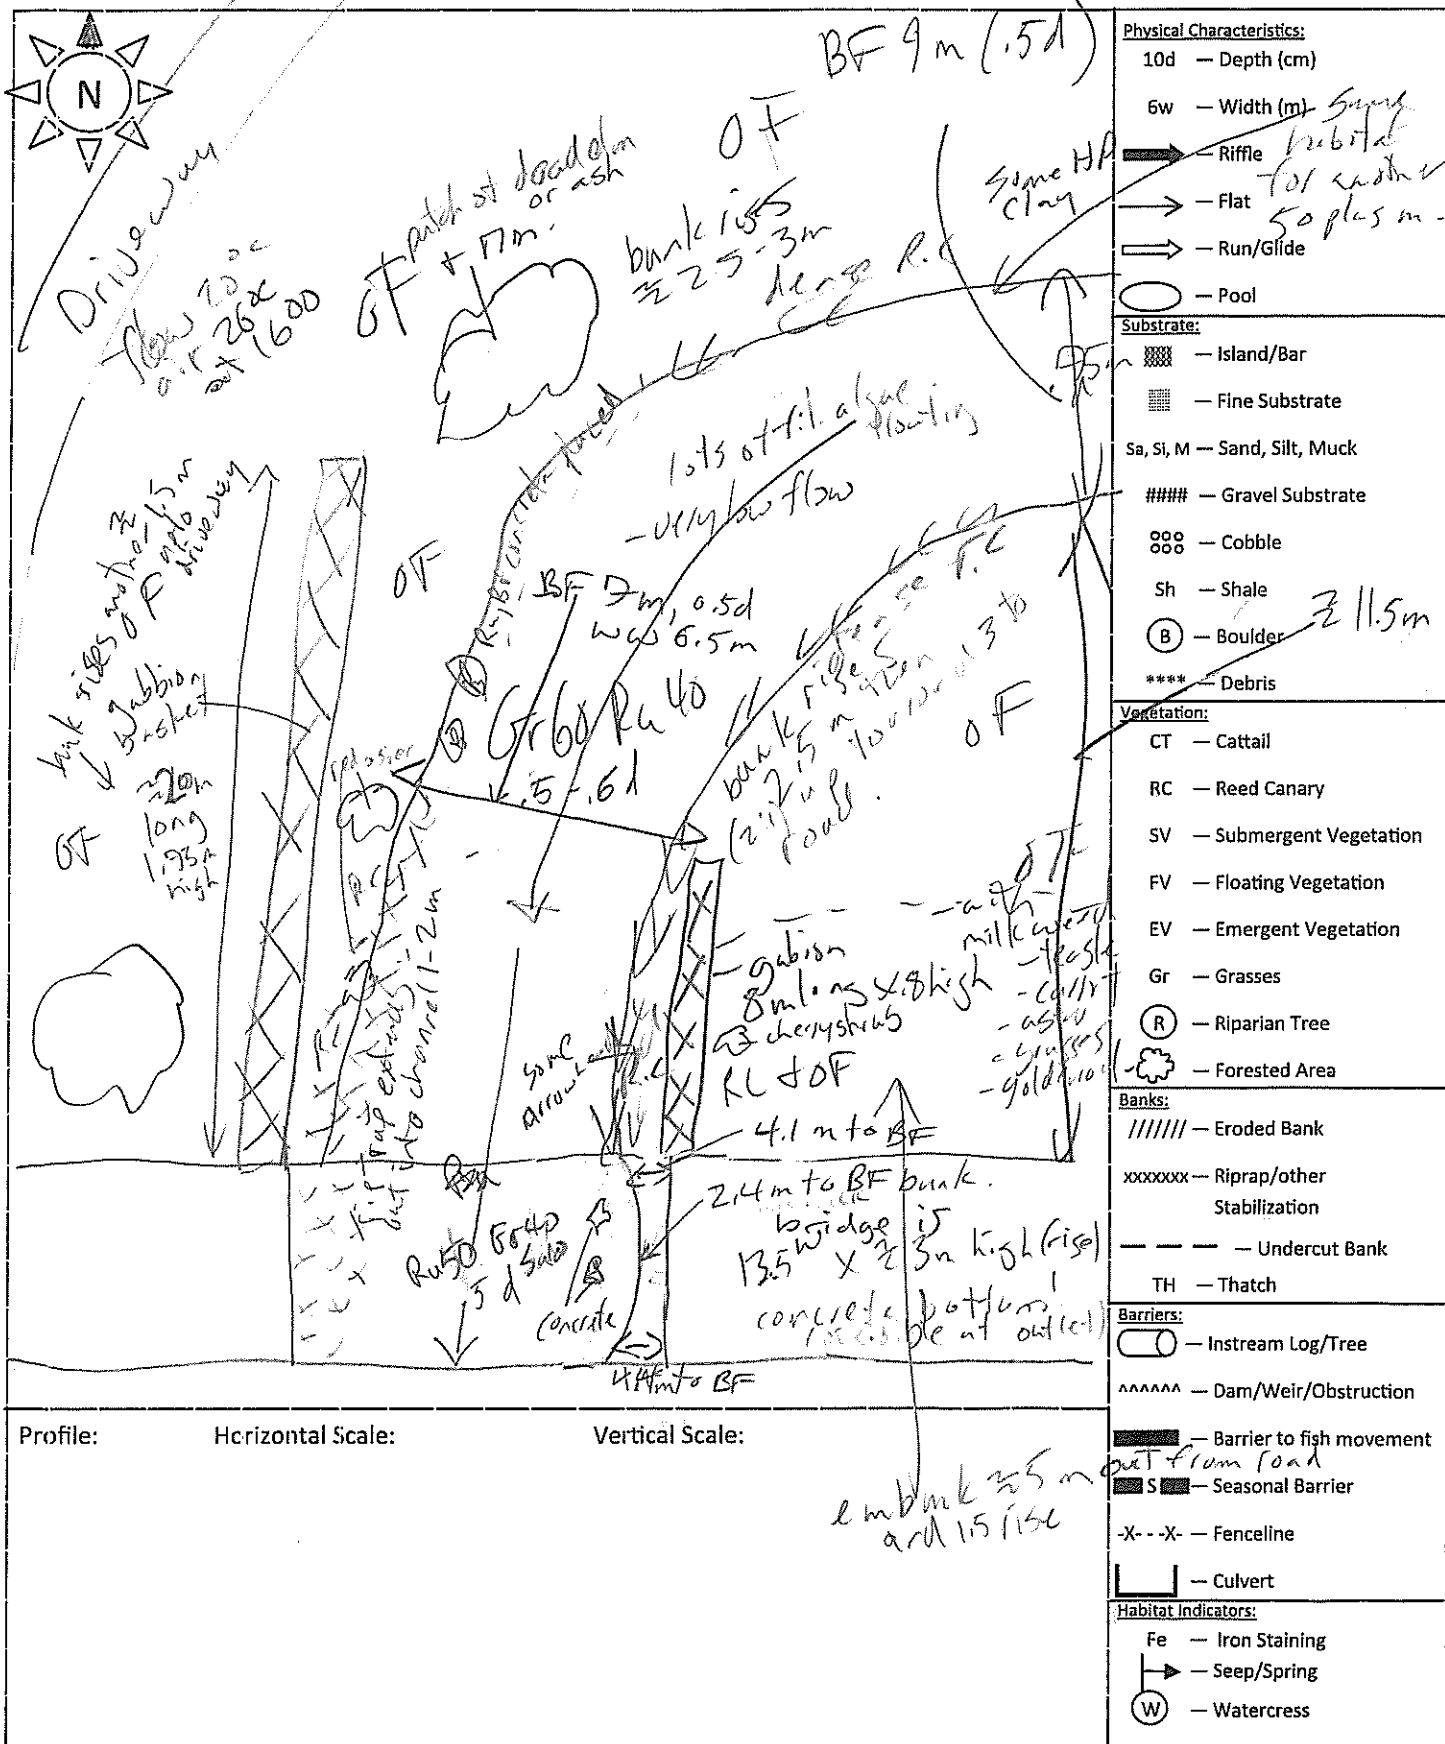 N
BF 9m (.5d)
OF
Driveway
flow 20°c
air 26°c
at 1600
patch of dead elm
or ash
OF + MM.
bank rises
≈ 2.5-3m
dense R.C
some HP
clay
same
habitat
for another
50 plus m
lots of fil. algae
floating
- very low flow
OF
BF 7m, 0.5d
ww 6.5m
Gr60 Ru40
.5-.6d
dense R.C
bank rises
OF
≈ 11.5m
bank rises
driveway
gabbion
basket
≈20m
long
1.93m
high
OF
red osier
rip rap extends
out into channel 1-2m
some
gabion
8m long x .8 high
cherry shrub
RC + OF
OF
- with
milkweed
- teasle
- aster
- grasses
- goldenrod
4.1m to BF
2.4m to BF bank.
bridge is
13.5w x ≈ 3m high (rise)
concrete bottom
at outlet)
Ru50 Gr40
5d
concrete
4.4m to BF
embank ≈5m out from road
and 1.5 rise
Profile:
Horizontal Scale:
Vertical Scale:
Physical Characteristics:
10d — Depth (cm)
6w — Width (m)
— Riffle
— Flat
— Run/Glide
— Pool
Substrate:
— Island/Bar
— Fine Substrate
Sa, Si, M — Sand, Silt, Muck
#### — Gravel Substrate
— Cobble
Sh — Shale
B — Boulder
**** — Debris
Vegetation:
CT — Cattail
RC — Reed Canary
SV — Submergent Vegetation
FV — Floating Vegetation
EV — Emergent Vegetation
Gr — Grasses
R — Riparian Tree
— Forested Area
Banks:
/////// — Eroded Bank
xxxxxxx — Riprap/other
Stabilization
— — — — Undercut Bank
TH — Thatch
Barriers:
— Instream Log/Tree
^^^^^^ — Dam/Weir/Obstruction
— Barrier to fish movement
S — Seasonal Barrier
-X- - -X- — Fenceline
— Culvert
Habitat Indicators:
Fe — Iron Staining
— Seep/Spring
W — Watercress